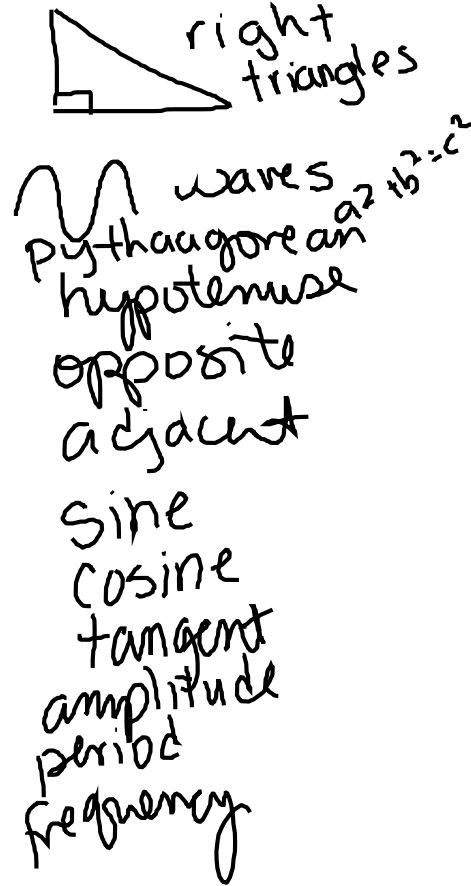 right
triangles
waves
a² + b² = c²
pythaagorean
hypotenuse
opposite
adjacent
sine
cosine
tangent
amplitude
period
frequency